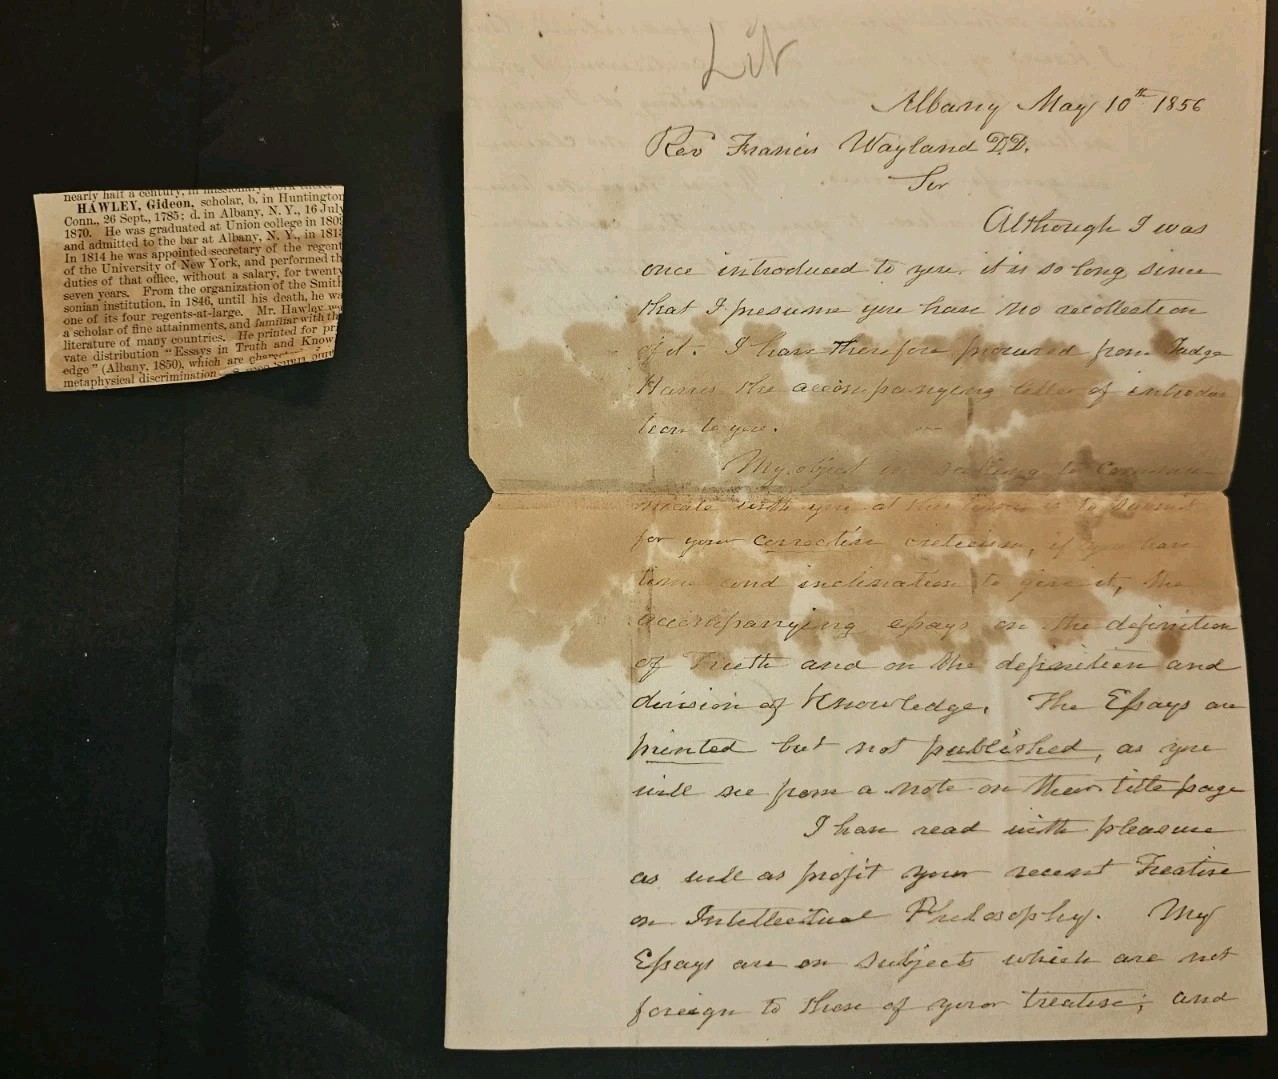 nearly half a century, in missionary work there,
HAWLEY, Gideon, scholar, b. in Huntington
Conn., 26 Sept., 1785; d. in Albany, N. Y., 16 July
1870. He was graduated at Union college in 180
and admitted to the bar at Albany, N. Y., in 181
In 1814 he was appointed secretary of the regent
of the University of New York, and performed th
duties of that office, without a salary, for twenty
seven years. From the organization of the Smith
sonian institution, in 1846, until his death, he wa
one of its four regents-at-large. Mr. Hawley wa
a scholar of fine attainments, and familiar with th
literature of many countries. He printed for pri
vate distribution "Essays in Truth and Know
edge" (Albany, 1850), which are
metaphysical discrimination
Lit
Albany May 10th 1856
Rev Francis Wayland D.D.
Sir
Although I was
once introduced to you. it is so long since
that I presume you have no recollection
of it. I have therefore procured from Judge
Harris the accompanying letter of introduc
tion to you.
My object in seeking to commu
nicate with you at this time is to submit
for your corrective criticism, if you have
time and inclination to give it, the
accompanying essays on the definition
of Truth and on the definition and
division of Knowledge. The Essays are
printed but not published, as you
will see from a note on their title page
I have read with pleasure
as well as profit your recent Treatise
on Intellectual Philosophy. My
Essays are on subjects which are not
foreign to those of your treatise; and